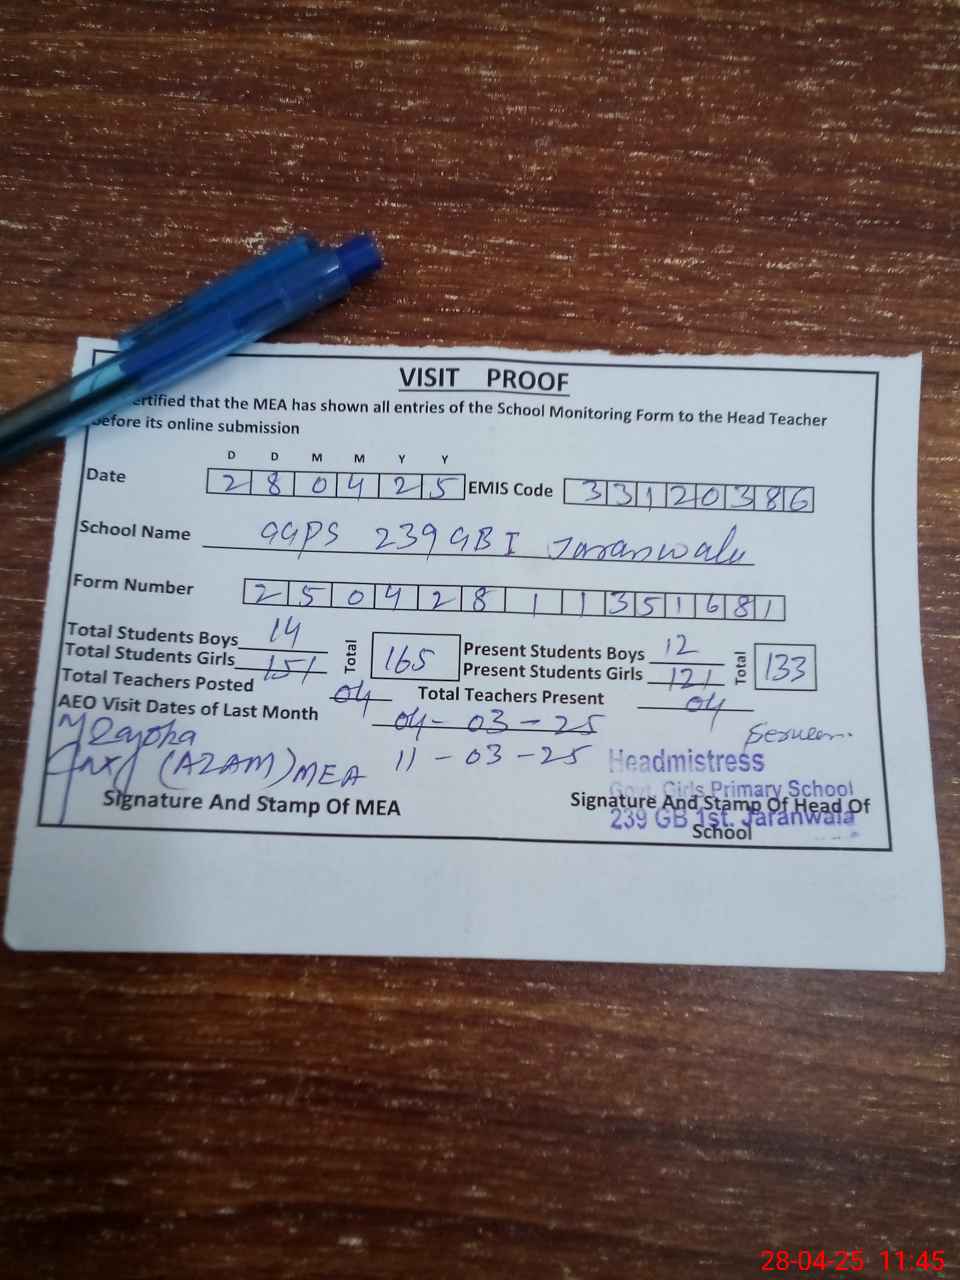 VISIT PROOF
ertified that the MEA has shown all entries of the School Monitoring Form to the Head Teacher
before its online submission
D D M M Y Y
Date 2 8 0 4 2 5 EMIS Code 3 3 1 2 0 3 8 6
School Name GGPS 239 GB I Jaranwala
Form Number 2 5 0 4 2 8 1 1 3 5 1 6 8 1
Total Students Boys 14 Total 165 Present Students Boys 12 Total 133
Total Students Girls 151 Present Students Girls 121
Total Teachers Posted 04 Total Teachers Present 04
AEO Visit Dates of Last Month 04-03-25
11-03-25
(AZAM) MEA
Headmistress
Govt. Girls Primary School
239 GB 1st. Jaranwala
Signature And Stamp Of MEA Signature And Stamp Of Head Of
School
28-04-25 11:45